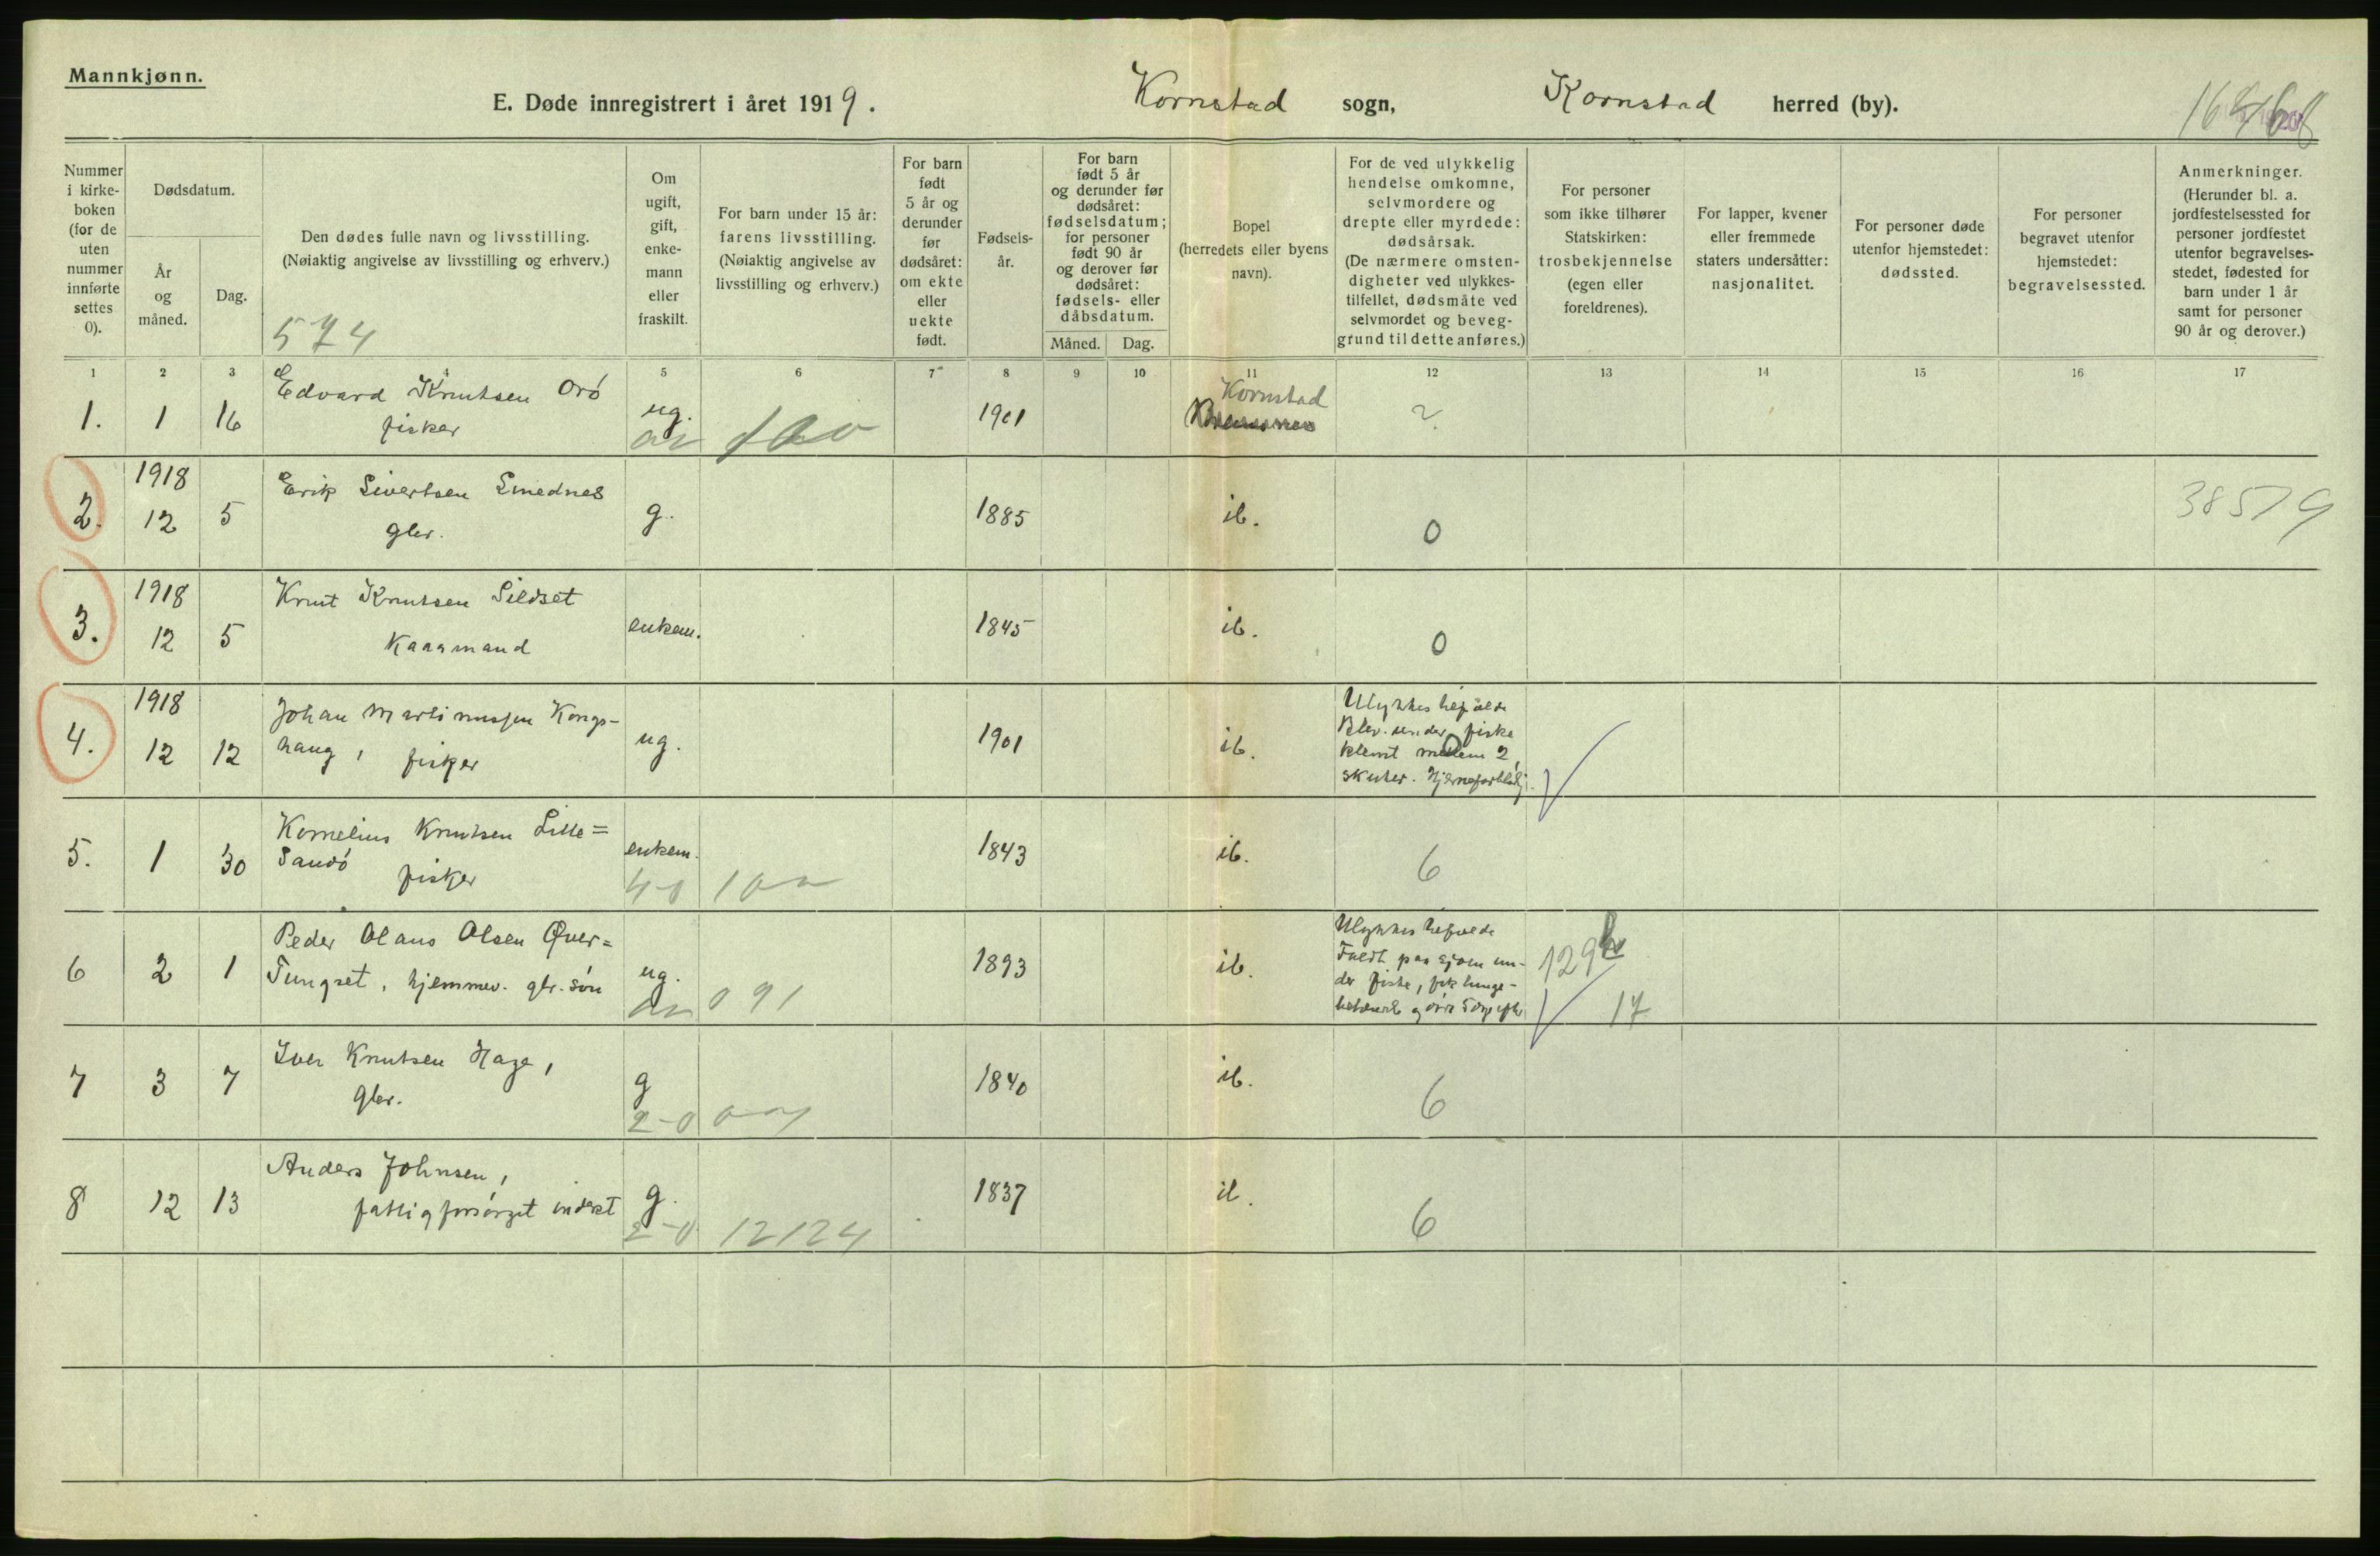 Mannkjønn.
E. Døde innregistrert i året 1919. Kornstad sogn, Kornstad herred (by).
Nummer i kirke-boken (for de uten nummer innførte settes 0).
Dødsdatum.
År og måned.
Dag.
Den dødes fulle navn og livsstilling.
(Nøiaktig angivelse av livsstilling og erhverv.)
574
Om ugift, gift, enke-mann eller fraskilt.
For barn under 15 år: farens livsstilling.
(Nøiaktig angivelse av livsstilling og erhverv.)
For barn født 5 år og derunder før dødsåret: om ekte eller uekte født.
Fødsels-år.
For barn født 5 år og derunder før dødsåret: fødselsdatum; for personer født 90 år og derover før dødsåret: fødsels- eller dåbsdatum.
Måned. Dag.
Bopel (herredets eller byens navn).
For de ved ulykkelig hendelse omkomne, selvmordere og drepte eller myrdede: dødsårsak.
(De nærmere omsten-digheter ved ulykkes-tilfellet, dødsmåte ved selvmordet og beveg-grund til dette anføres.)
For personer som ikke tilhører Statskirken: trosbekjennelse (egen eller foreldrenes).
For lapper, kvener eller fremmede staters undersåtter: nasjonalitet.
For personer døde utenfor hjemstedet: dødssted.
For personer begravet utenfor hjemstedet: begravelsessted.
Anmerkninger.
(Herunder bl. a. jordfestelsessted for personer jordfestet utenfor begravelses-stedet, fødested for barn under 1 år samt for personer 90 år og derover.)
1 2 3 4 5 6 7 8 9 10 11 12 13 14 15 16 17
1. 1 16 Edvard Knutsen Orö ug. 1901 Kornstad ?
fisker
1918
2. 12 5 Erik Sivertsen Smednes g. 1885 ib. 0 38519
gbr.
1918
3. 12 5 Knut Knutsen Sildset enkem. 1845 ib. 0
Kaarmand
1918
4. 12 12 Johan Martinussen Kongs-
haug, fisker ug. 1901 ib.
Ulykkestilfælde
Blev under fiske
klemt mellem 2
skuter. Hjerneforblødn.
5. 1 30 Kornelius Knutsen Lille=
Sandö fisker enkem. 1843 ib. 6
4-0 100
6 2 1 Peder Olaus Olsen Øver=
Tungset, hjemmev. gbr. sön ug. 1893 ib.
091
Faldt paa sjöen un-
der fiske, fik lunge-
129
17
7 3 7 Iver Knutsen Hage, g 1840 ib. 6
gbr.
2-0
8 12 13 Anders Johnsen, g. 1837 ib. 6
fattigforsörget inderst
2-0 12124